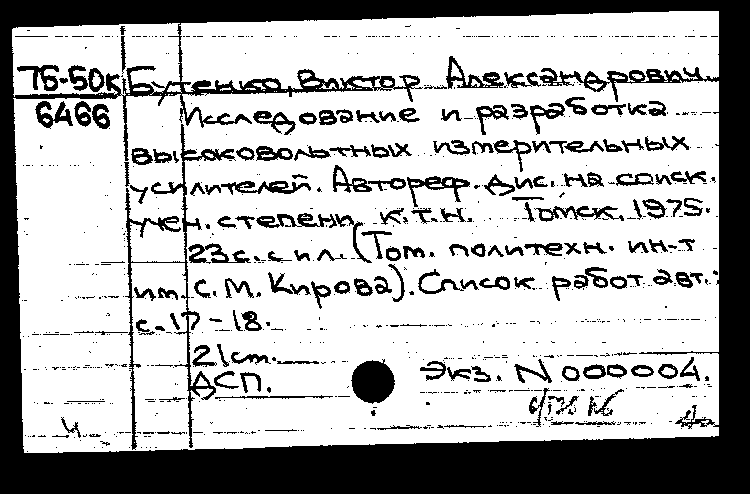 76-50к Бутенко, Виктор Александрович.
6466 Исследование и разработка
высоковольтных измерительных
усилителей. Автореф. дис. на соиск.
учен. степени к.т.н. Томск, 1975.
23 с. с ил. (Том. политехн. ин-т
им. С. М. Кирова). Список работ авт.:
с. 17-18.
21 см.
ДСП. Экз. N 000004.